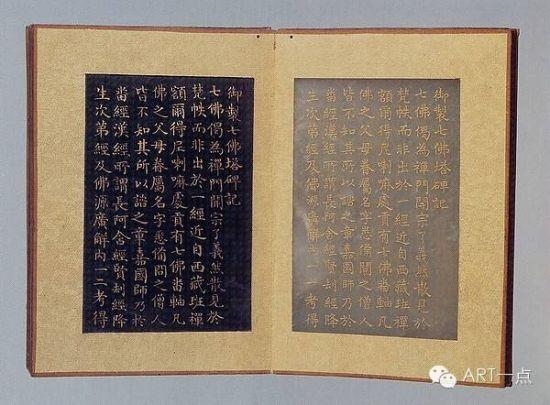 御製七佛塔碑記
七佛偈為禪門開宗了義然散見於
梵帙而非出於一經近自西藏班禪
額爾得尼喇嘛處貢有七佛畨軸凡
佛之父母眷屬名字悉備問之僧人
皆不知其所以詰之章嘉國師乃於
畨經漢經所謂長阿含經賢刼經降
生次第經及佛源廣解內一一考得
御製七佛塔碑記
七佛偈為禪門開宗了義然散見於
梵帙而非出於一經近自西藏班禪
額爾得尼喇嘛處貢有七佛畨軸凡
佛之父母眷屬名字悉備問之僧人
皆不知其所以詰之章嘉國師乃於
畨經漢經所謂長阿含經賢刼經降
生次第經及佛源廣解內一一考得
ART一点